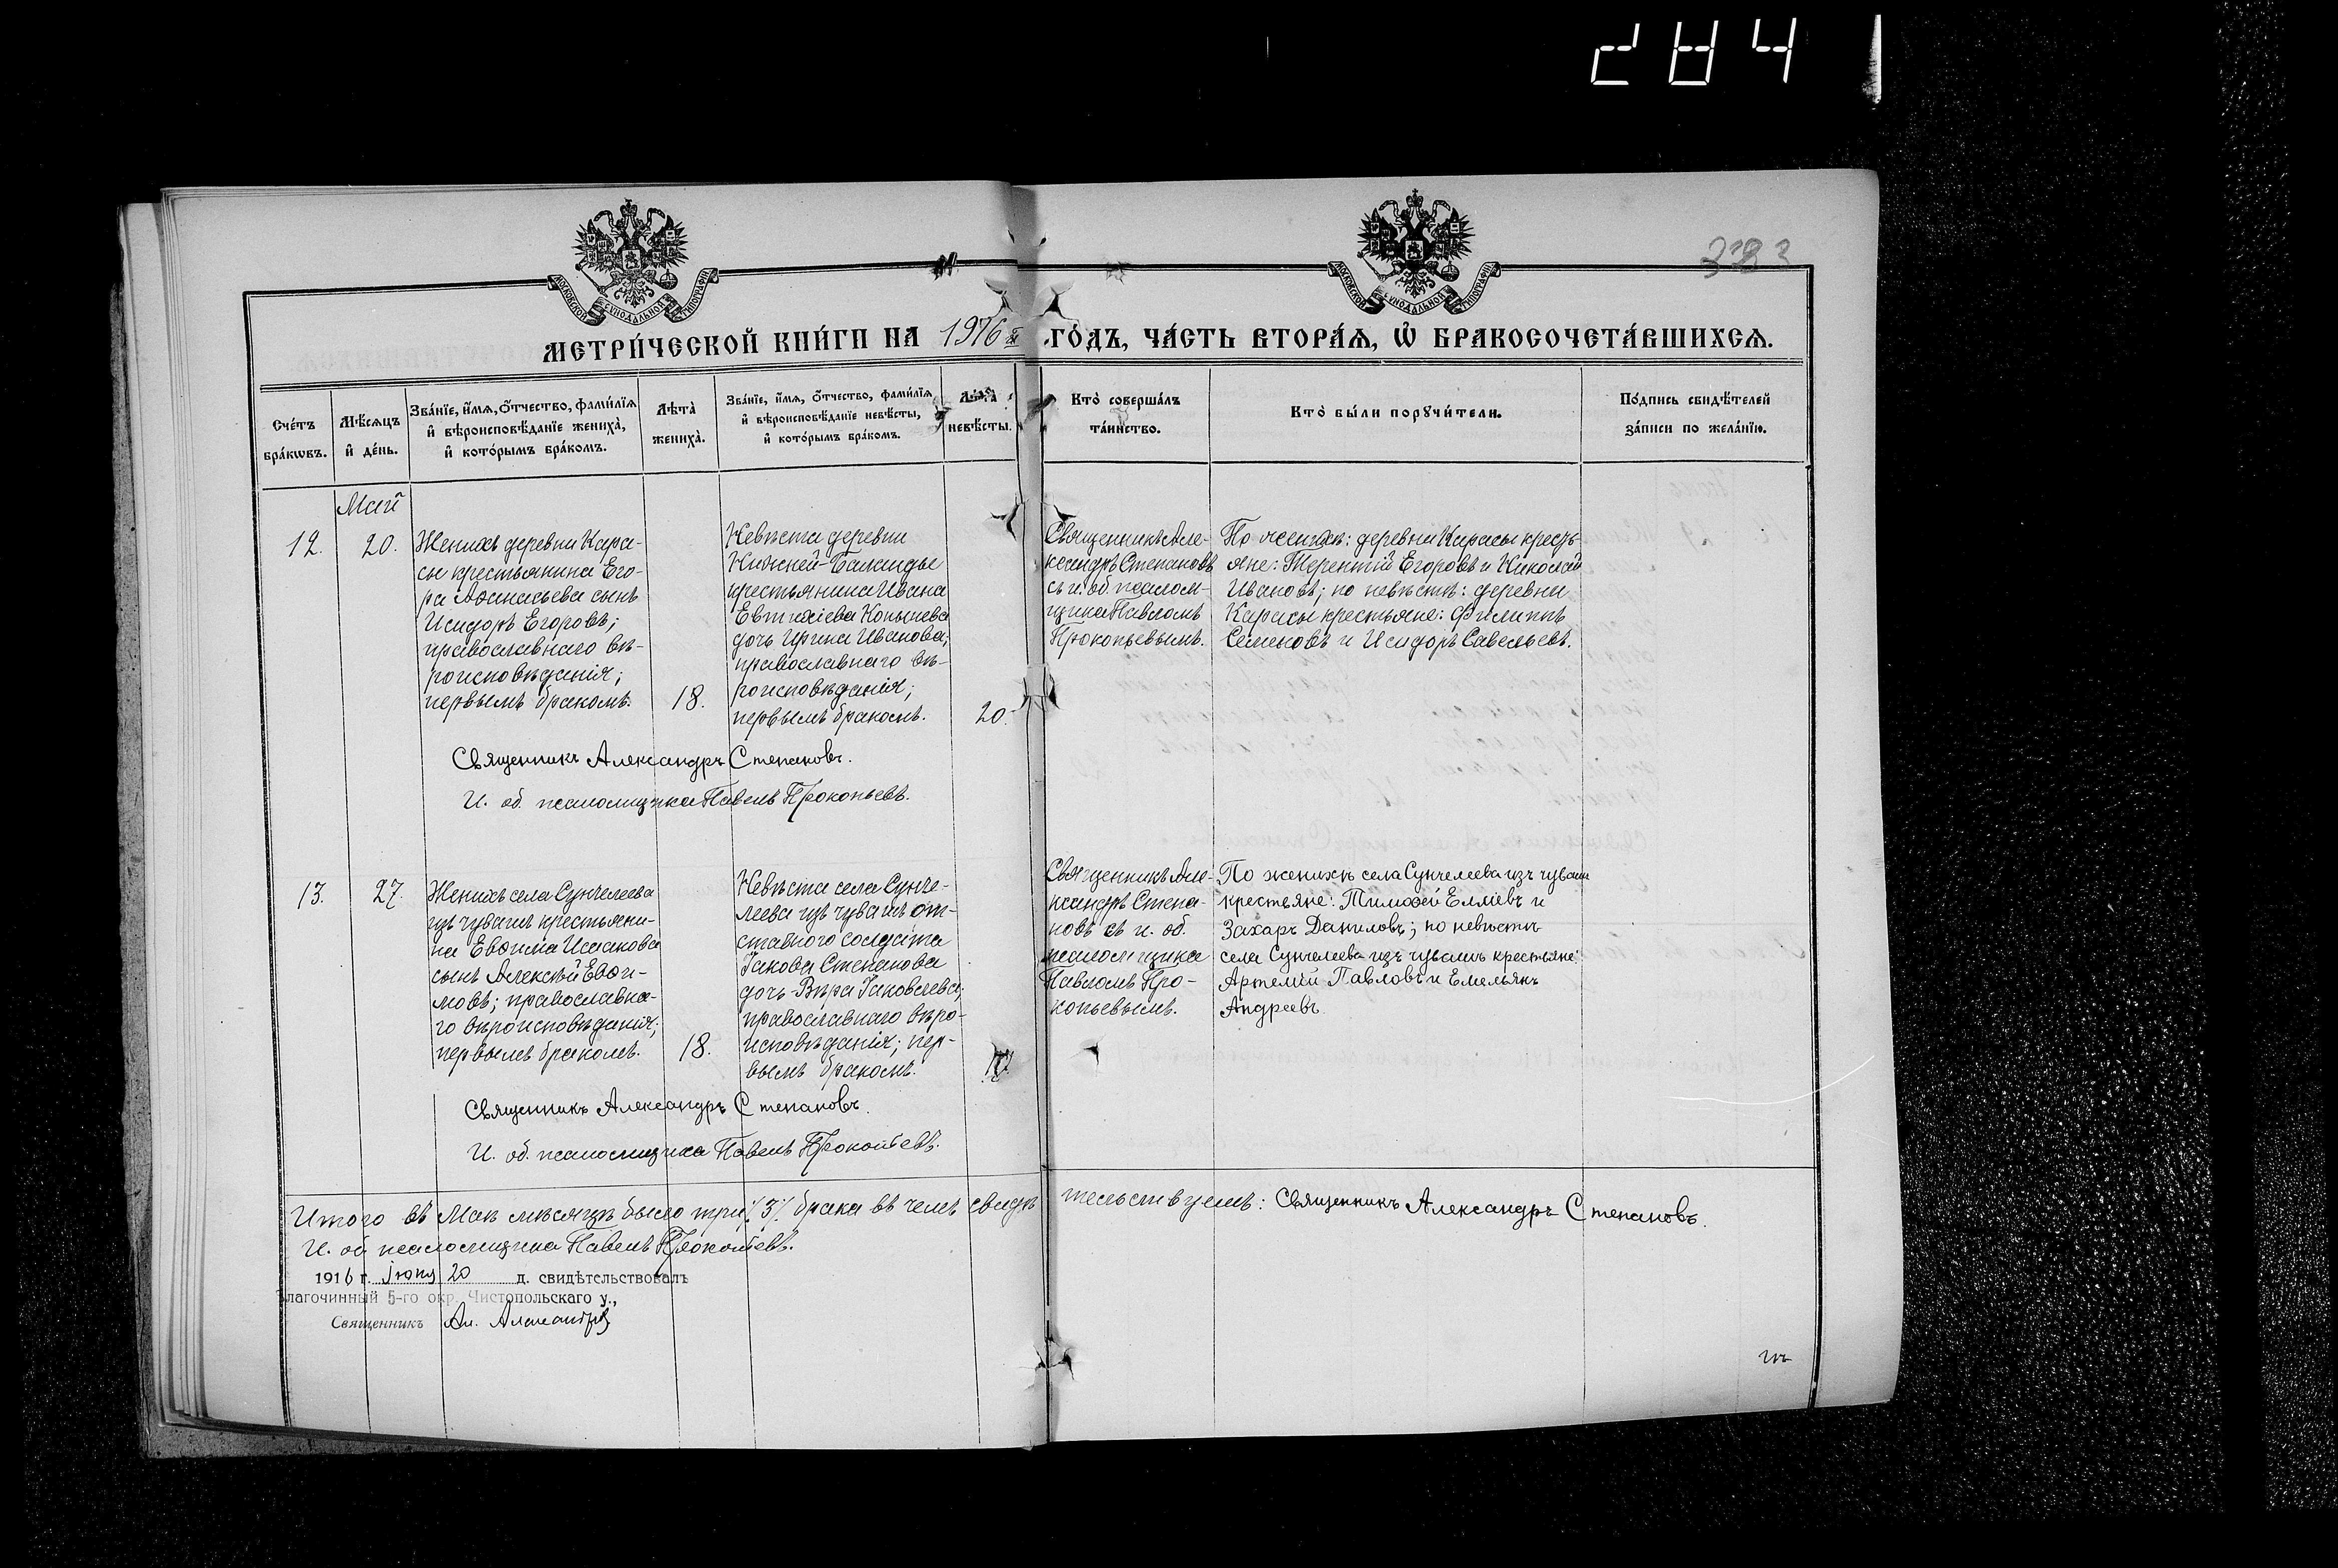 2841
323
МОСКОВСКОЙ СѴНОДАЛЬНОЙ ТИПОГРАФІИ
МОСКОВСКОЙ СѴНОДАЛЬНОЙ ТИПОГРАФІИ
МЕТРИ́ЧЕСКОЙ КНИ́ГИ НА 1916 й ГО́ДЪ, ЧА́СТЬ ВТОРА́Ѧ, Ѡ҆ БРАКОСОЧЕТА́ВШИХСѦ.
Сче́тъ бра́кѡвъ.
Мѣ́сѧцъ и҆ де́нь.
Зва́нїе, и҆́мѧ, ѻ҆́тчество, фами́лїѧ и҆ вѣроисповѣ́данїе жениха̀, и҆ кото́рымъ бра́комъ.
Лѣта̀ жениха̀.
Зва́нїе, и҆́мѧ, ѻ҆́тчество, фами́лїѧ и҆ вѣроисповѣ́данїе невѣ́сты, и҆ кото́рымъ бра́комъ.
Лѣта̀ невѣ́сты.
Кто̀ соверша́лъ та́инство.
Кто̀ бы́ли порꙋчи́тели.
По́дпись свидѣ́телей за́писи по жела́нїю.
Май
12.
20.
Женихъ деревни Кара-
сы крестьянина Его-
ра Аѳанасьева сынъ
Исидоръ Егоровъ;
православнаго вѣ-
роисповѣданія;
первымъ бракомъ.
18.
Невѣста деревни
Нижней-Баланды
крестьянина Ивана
Евтихіева Копышева
дочь Ирина Иванова;
православнаго вѣ-
роисповѣданія;
первымъ бракомъ.
20.
Священникъ Але-
ксандръ Степановъ
съ и. об. псалом-
щика Павломъ
Прокопьевымъ.
По женихѣ: деревни Карасы кресть
яне: Терентій Егоровъ и Николай
Ивановъ; по невѣстѣ: деревни
Карасы крестьяне: Филиппъ
Семеновъ и Исидоръ Савельевъ.
Священникъ Александръ Степановъ.
И. об. псаломщика Павелъ Прокопьевъ.
13.
27.
Женихъ села Сунчелеева
изъ чувашъ крестьяни-
на Евѳима Исакова
сынъ Алексѣй Евѳи-
мовъ; православна-
го вѣроисповѣданія;
первымъ бракомъ.
18.
Невѣста села Сунче-
леева изъ чувашъ от-
ставного солдата
Іакова Степанова
дочь Вѣра Іаковлева;
православнаго вѣро-
исповѣданія; пер-
вымъ бракомъ.
Священникъ Але-
ксандръ Степа-
новъ съ и. об.
псаломщика
Павломъ Про-
копьевымъ.
По женихѣ села Сунчелеева изъ чувашъ
крестьяне: Тимоѳей Елліевъ и
Захаръ Даниловъ; по невѣстѣ
села Сунчелеева изъ чувашъ крестьяне:
Артемій Павловъ и Емельянъ
Андреевъ
Священникъ Александръ Степановъ.
И. об. псаломщика Павелъ Прокопьевъ.
Итого въ Маѣ мѣсяцѣ было три /3/ брака въ чемъ свидѣ тельствуемъ: Священникъ Александръ Степановъ.
И. об псаломщика Павелъ Прокопьевъ.
1916 г. Іюня 20 д. свидѣтельствовалъ
Благочинный 5-го окр. Чистопольскаго у.,
Священникъ Ал.